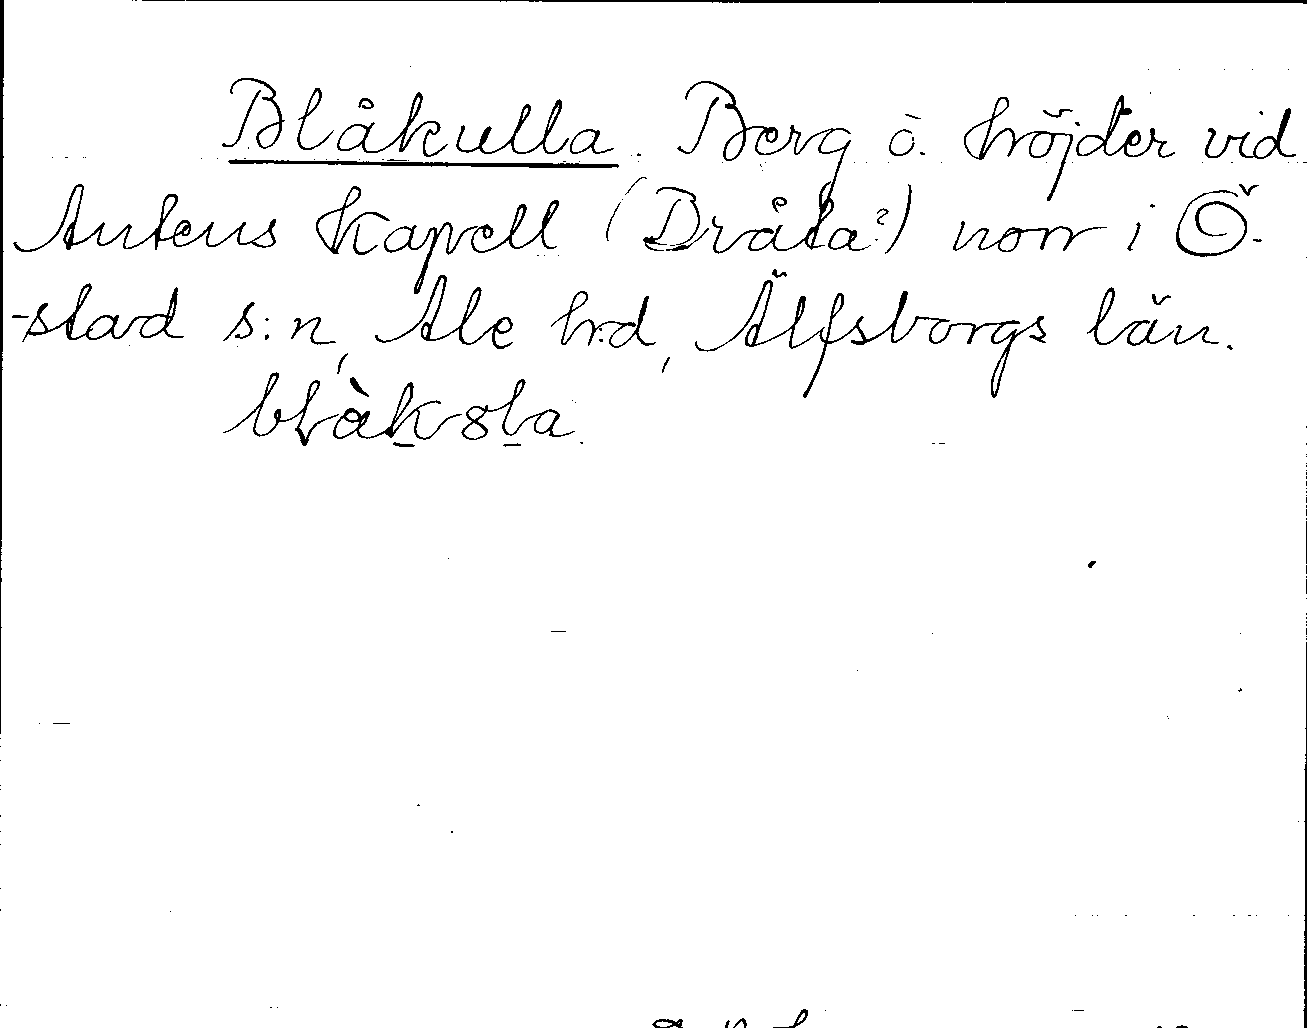 Blåkulla. Berg o. höjder vid
Antens Kapell (Dråta?) norr i Ö-
-stad s:n, Ale hrd, Älfsborgs län.
blàk8la.